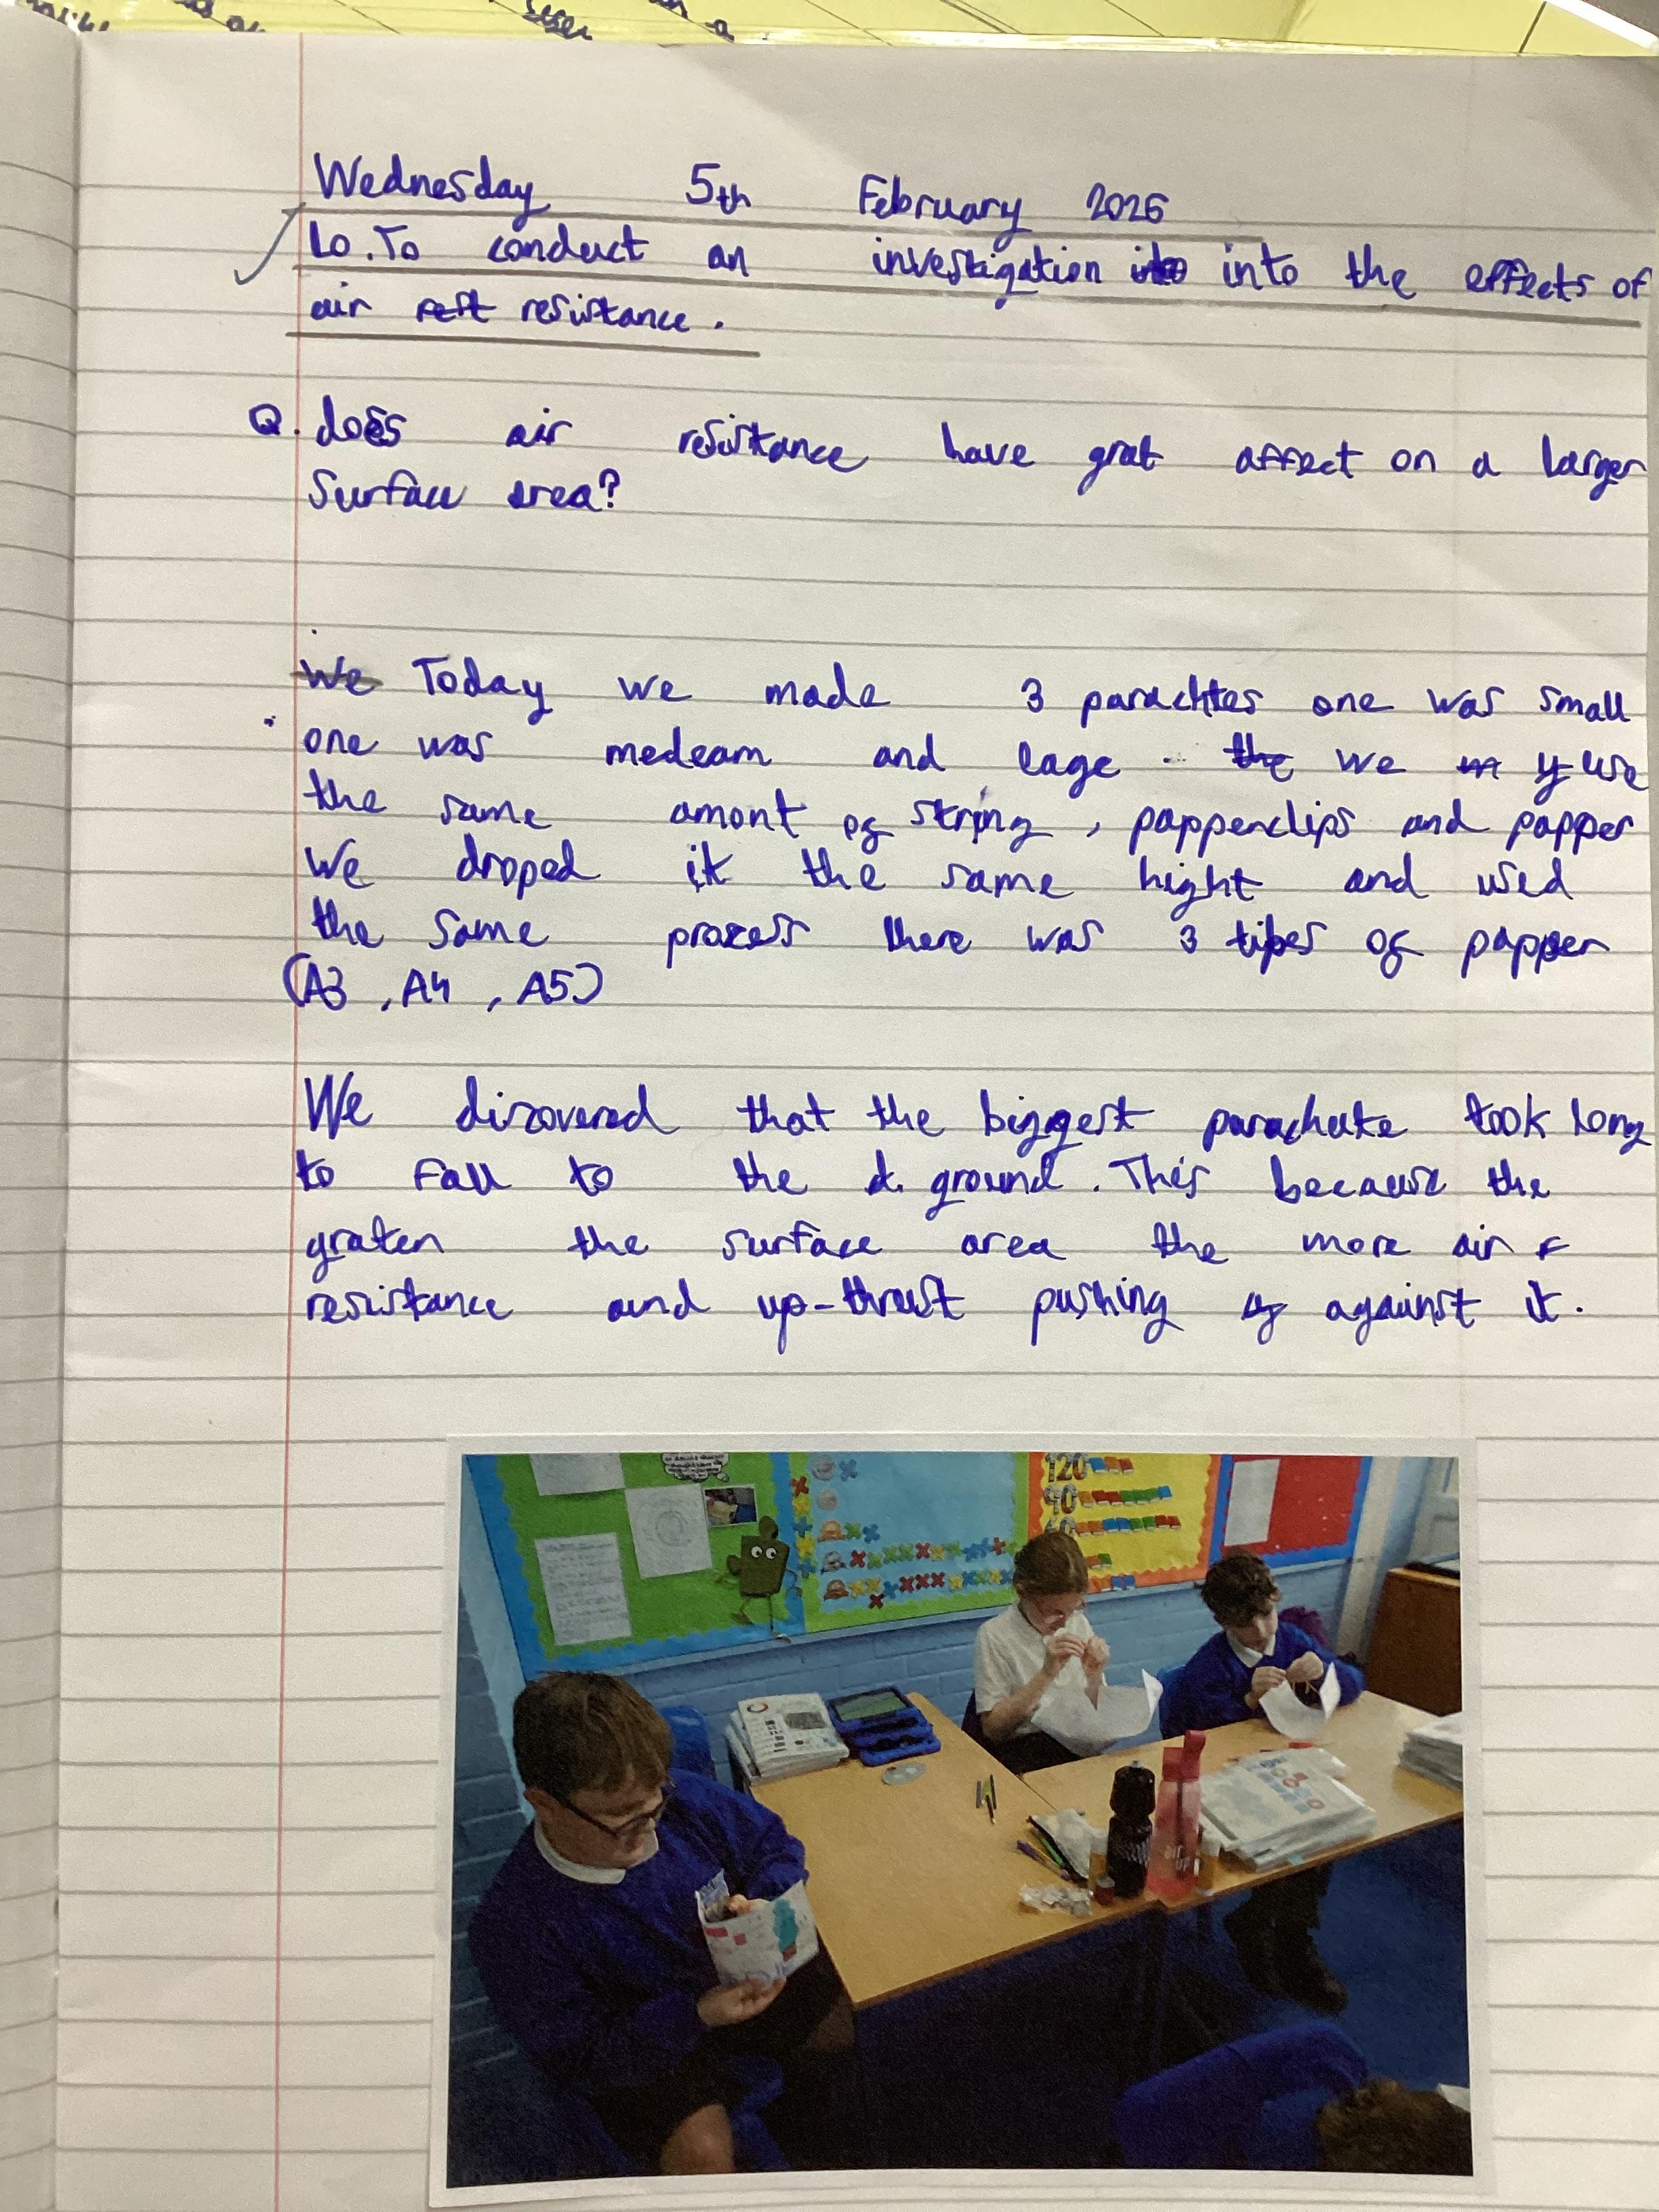 Wednesday 5th February 2026
Lo. To conduct an investigation into the effects of
air resistance.
Q. does air resistance have grat affect on a larger
Surface area?
Today we made 3 parachtes one was small
one was medeam and lage we use
the same amont of string, papperclips and papper
We droped it the same hight and used
the same prozess there was 3 tipes of papper
(A3, A4, A5)
We discovered that the biggest parachute took long
to fall to the ground. This because the
graten the surface area the more air
resistance and up-thrust pushing against it.
120
90
air up